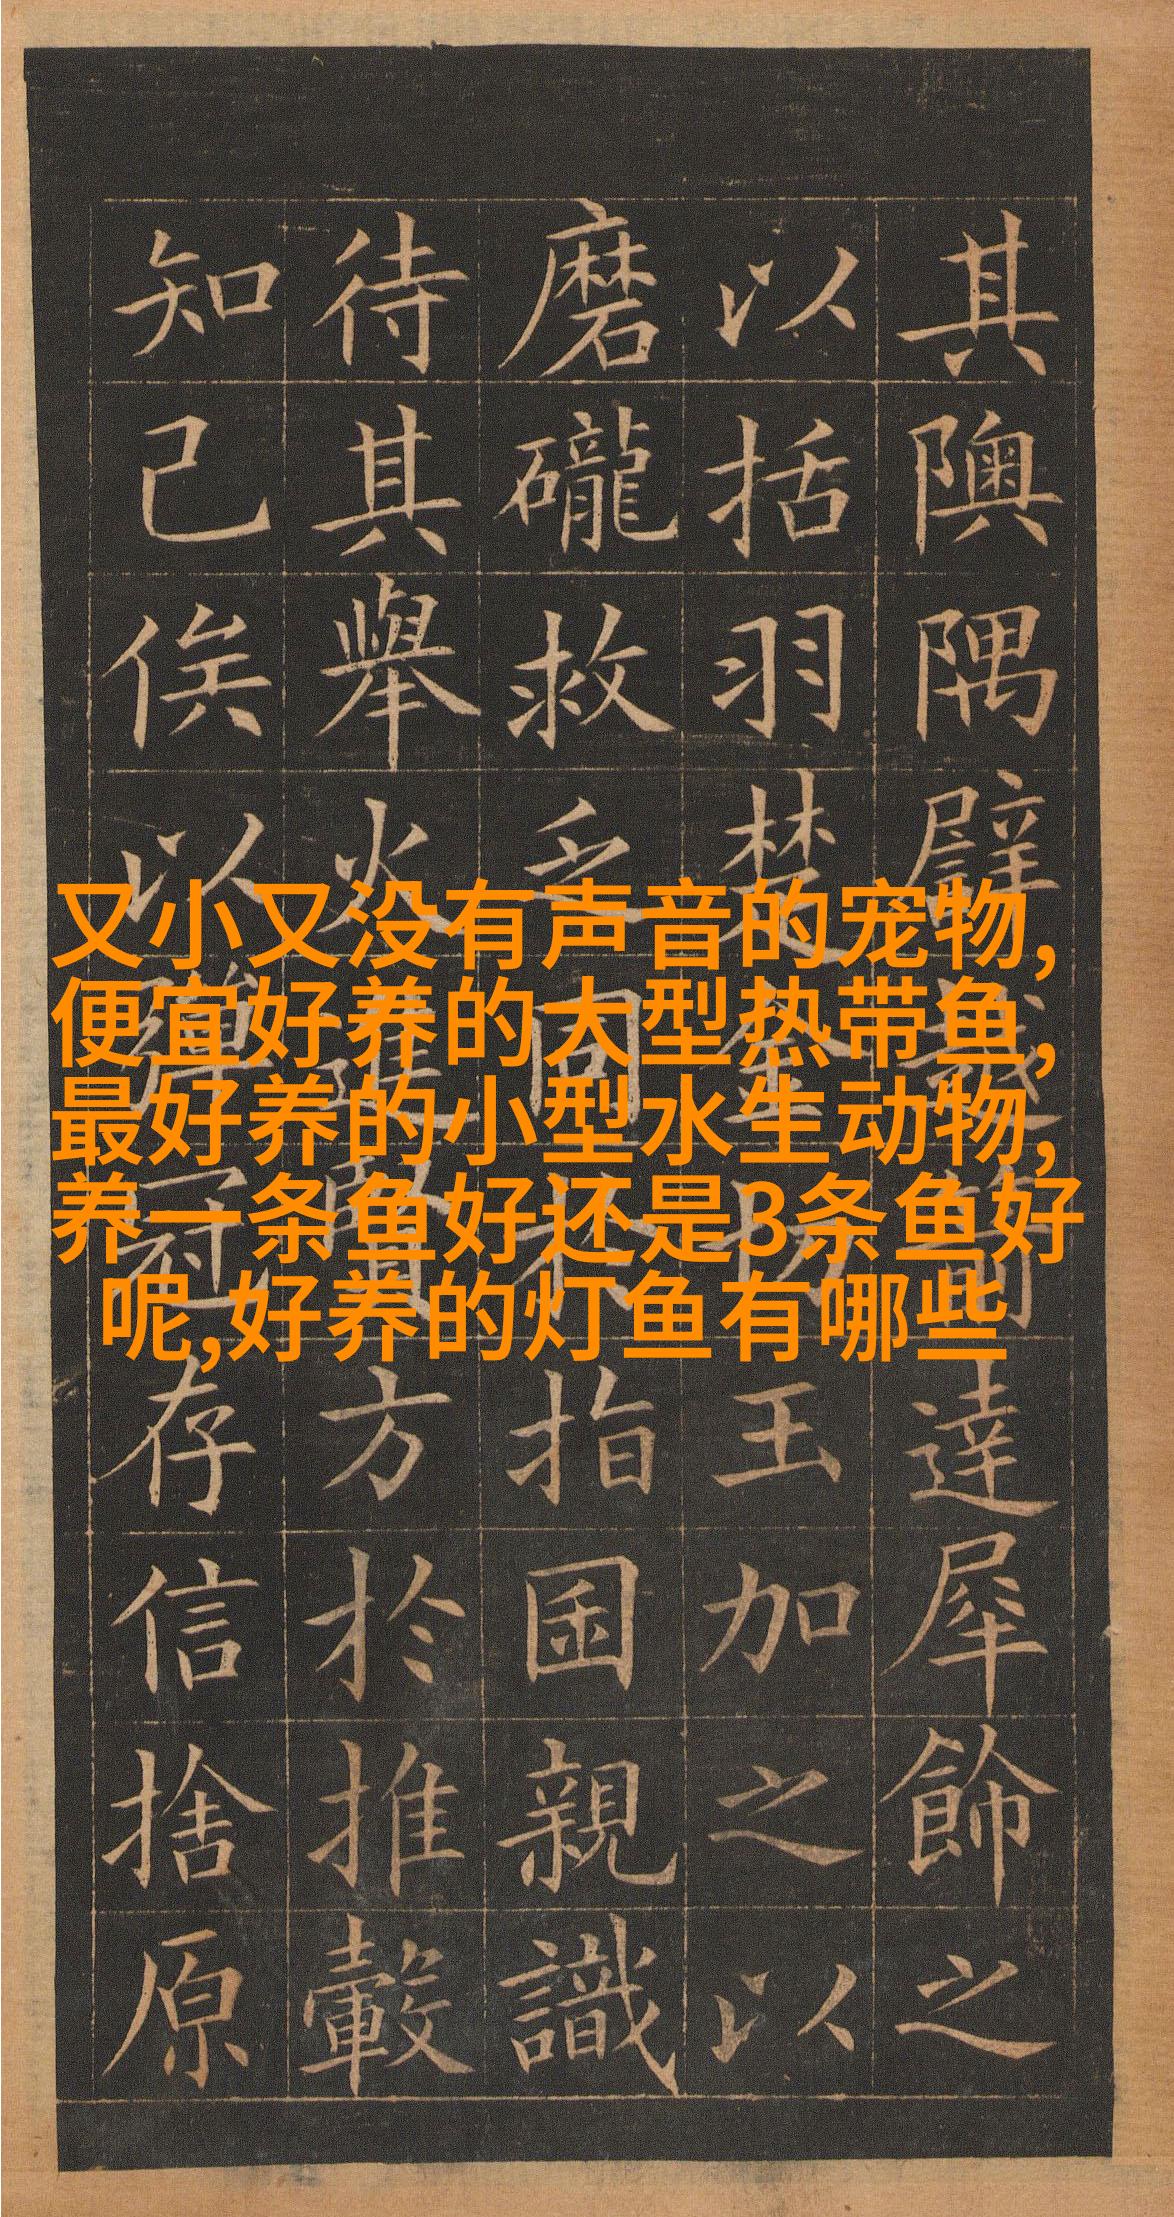 其隩隅譬越箭達犀飾之
以括羽楚金切玉加之以
磨礲救乏同於指囷親識
待其舉火進賢方於推轂
知己俟以彈冠存信捨原
又小又没有声音的宠物,
便宜好养的大型热带鱼,
最好养的小型水生动物,
养一条鱼好还是3条鱼好
呢,好养的灯鱼有哪些